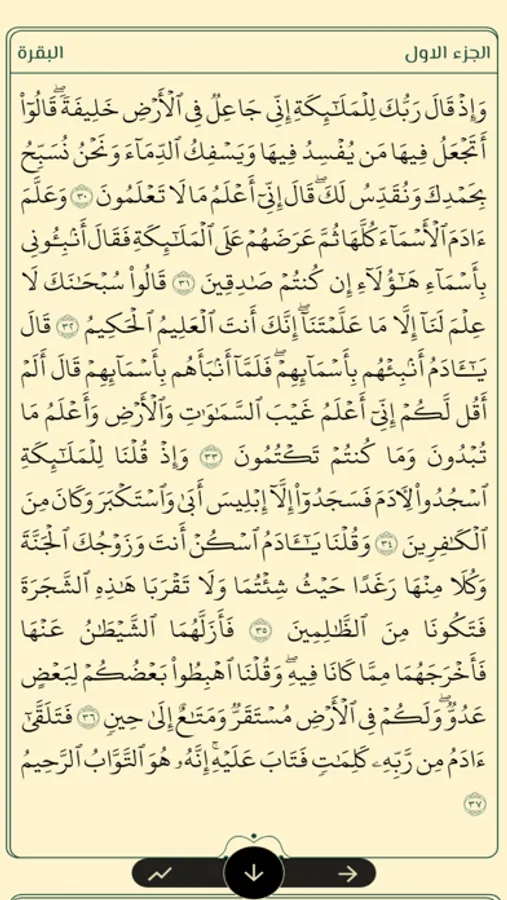 الجزء الاول
البقرة
وَإِذْ قَالَ رَبُّكَ لِلْمَلَـٰٓئِكَةِ إِنِّى جَاعِلٌ فِى ٱلْأَرْضِ خَلِيفَةً ۖ قَالُوٓا۟
أَتَجْعَلُ فِيهَا مَن يُفْسِدُ فِيهَا وَيَسْفِكُ ٱلدِّمَآءَ وَنَحْنُ نُسَبِّحُ
بِحَمْدِكَ وَنُقَدِّسُ لَكَ ۖ قَالَ إِنِّىٓ أَعْلَمُ مَا لَا تَعْلَمُونَ ٣٠ وَعَلَّمَ
ءَادَمَ ٱلْأَسْمَآءَ كُلَّهَا ثُمَّ عَرَضَهُمْ عَلَى ٱلْمَلَـٰٓئِكَةِ فَقَالَ أَنۢبِـُٔونِى
بِأَسْمَآءِ هَـٰٓؤُلَآءِ إِن كُنتُمْ صَـٰدِقِينَ ٣١ قَالُوا۟ سُبْحَـٰنَكَ لَا
عِلْمَ لَنَآ إِلَّا مَا عَلَّمْتَنَآ ۖ إِنَّكَ أَنتَ ٱلْعَلِيمُ ٱلْحَكِيمُ ٣٢ قَالَ
يَـٰٓـَٔادَمُ أَنۢبِئْهُم بِأَسْمَآئِهِمْ ۖ فَلَمَّآ أَنۢبَأَهُم بِأَسْمَآئِهِمْ قَالَ أَلَمْ
أَقُل لَّكُمْ إِنِّىٓ أَعْلَمُ غَيْبَ ٱلسَّمَـٰوَٰتِ وَٱلْأَرْضِ وَأَعْلَمُ مَا
تُبْدُونَ وَمَا كُنتُمْ تَكْتُمُونَ ٣٣ وَإِذْ قُلْنَا لِلْمَلَـٰٓئِكَةِ
ٱسْجُدُوا۟ لِـَٔادَمَ فَسَجَدُوٓا۟ إِلَّآ إِبْلِيسَ أَبَىٰ وَٱسْتَكْبَرَ وَكَانَ مِنَ
ٱلْكَـٰفِرِينَ ٣٤ وَقُلْنَا يَـٰٓـَٔادَمُ ٱسْكُنْ أَنتَ وَزَوْجُكَ ٱلْجَنَّةَ
وَكُلَا مِنْهَا رَغَدًا حَيْثُ شِئْتُمَا وَلَا تَقْرَبَا هَـٰذِهِ ٱلشَّجَرَةَ
فَتَكُونَا مِنَ ٱلظَّـٰلِمِينَ ٣٥ فَأَزَلَّهُمَا ٱلشَّيْطَـٰنُ عَنْهَا
فَأَخْرَجَهُمَا مِمَّا كَانَا فِيهِ ۖ وَقُلْنَا ٱهْبِطُوا۟ بَعْضُكُمْ لِبَعْضٍ
عَدُوٌّ ۖ وَلَكُمْ فِى ٱلْأَرْضِ مُسْتَقَرٌّ وَمَتَـٰعٌ إِلَىٰ حِينٍ ٣٦ فَتَلَقَّىٰٓ
ءَادَمُ مِن رَّبِّهِۦ كَلِمَـٰتٍ فَتَابَ عَلَيْهِ ۚ إِنَّهُۥ هُوَ ٱلتَّوَّابُ ٱلرَّحِيمُ
٣٧